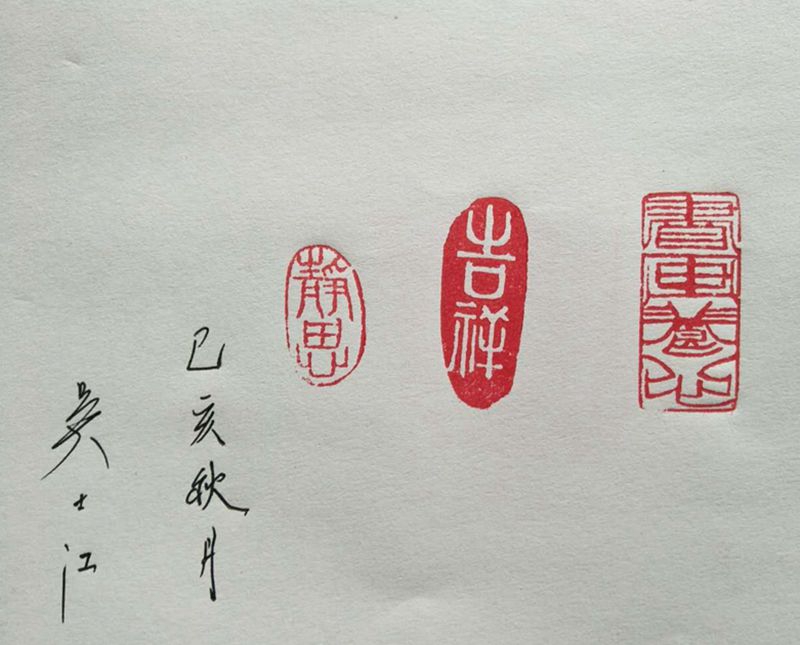 養心
吉祥
静思
己亥秋月
吴士江